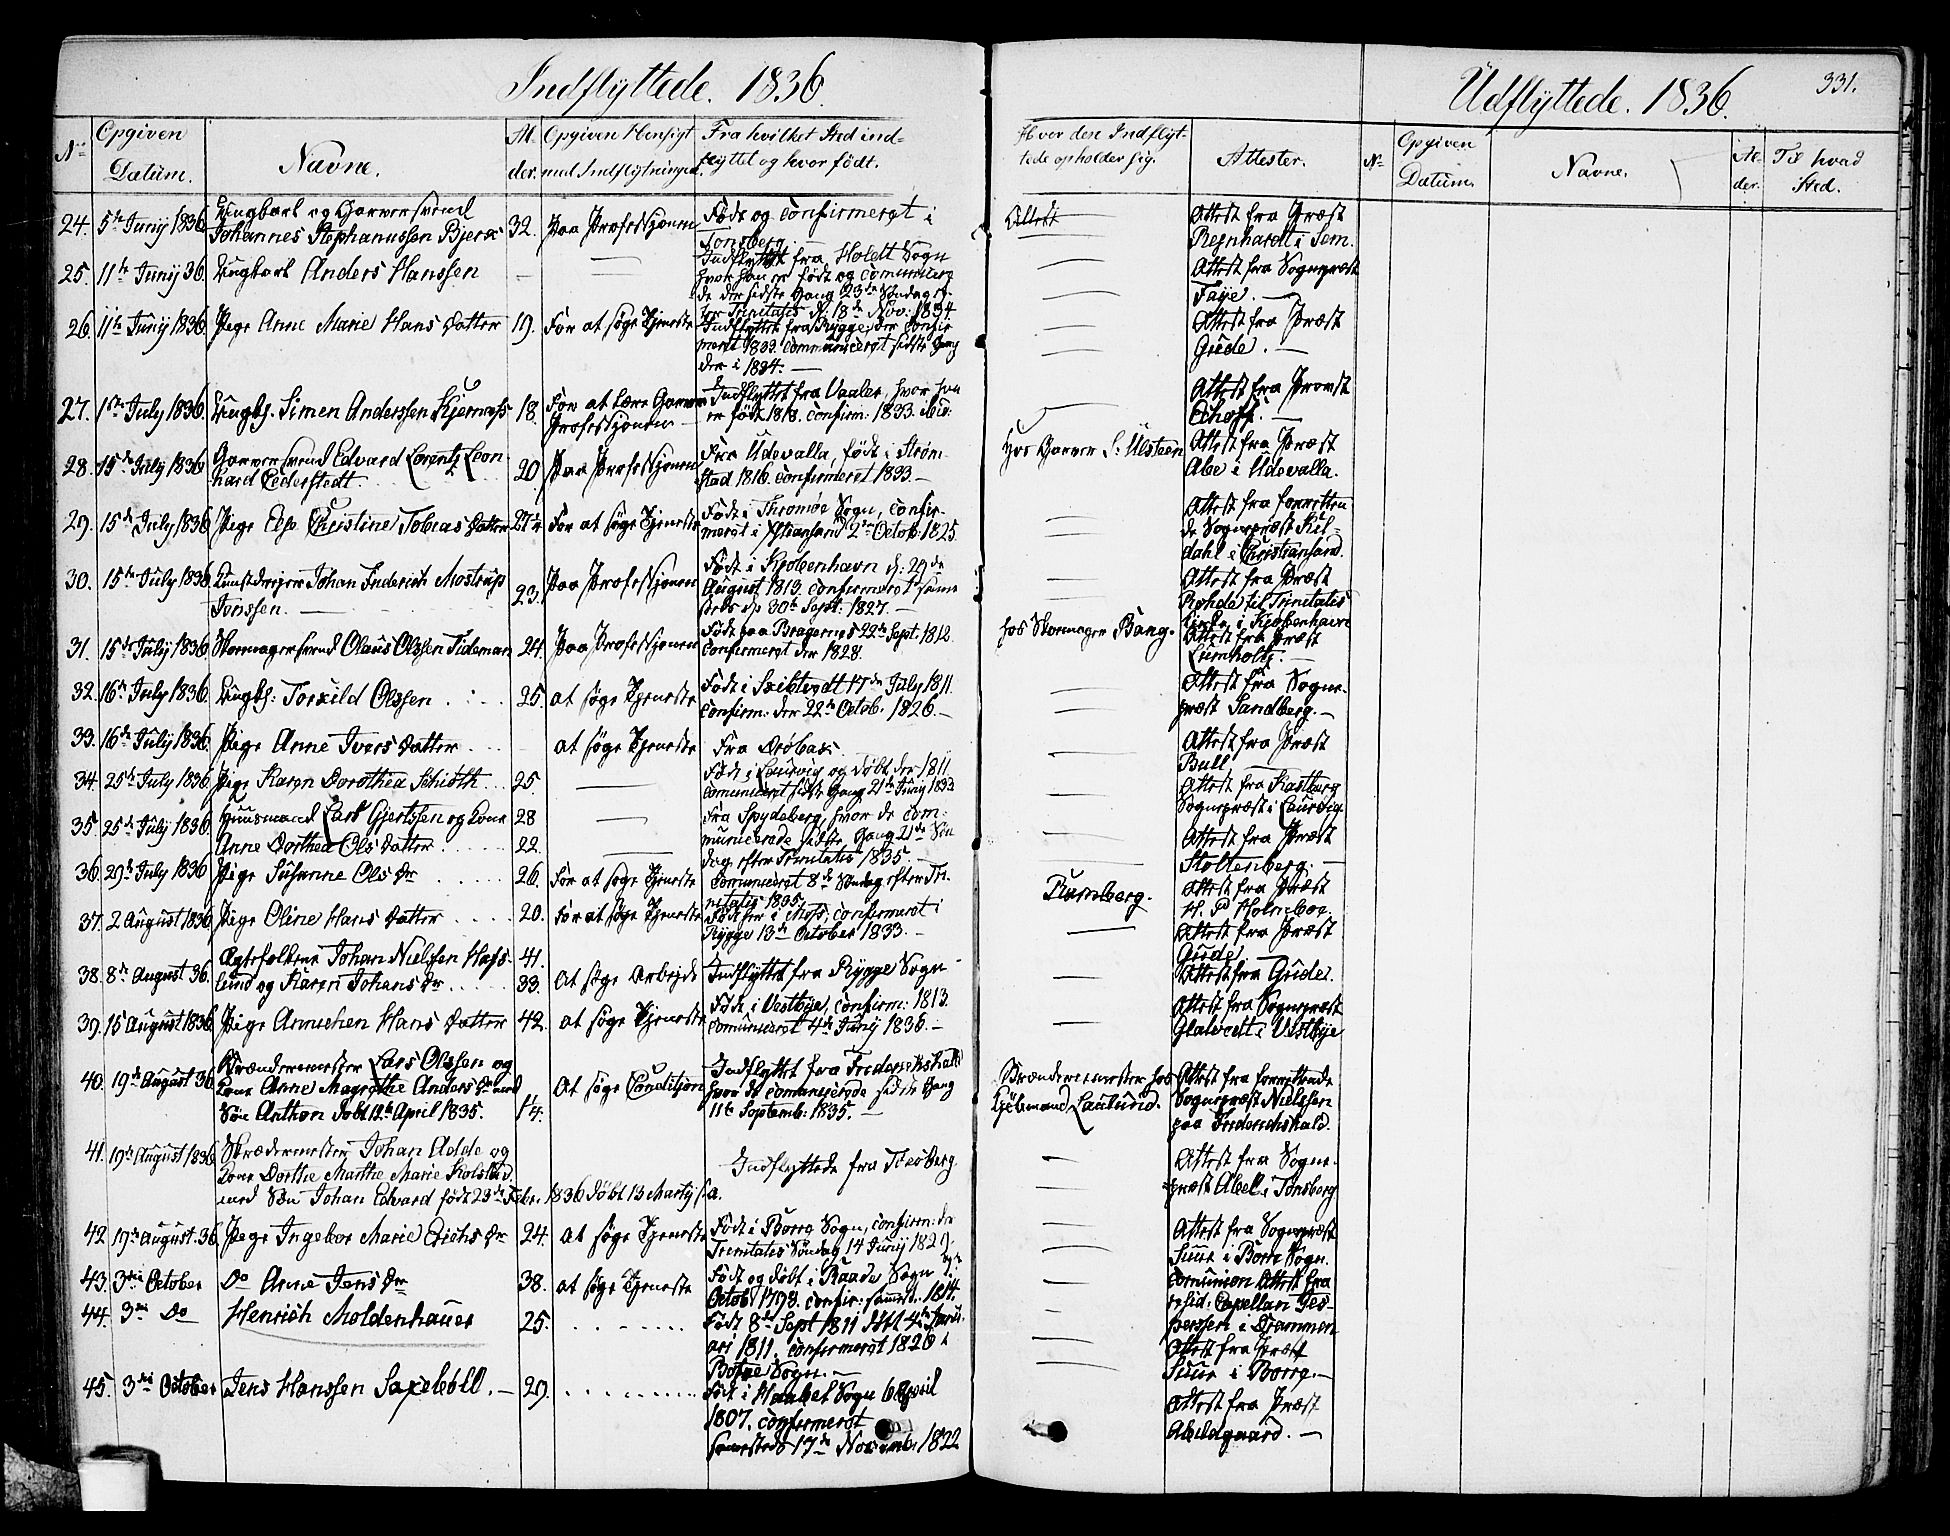 Indflyttede. 1836.
Udflyttede. 1836.
331.
No
Opgiven
Datum.
Navne.
Al-
der.
Opgiven Hensigt
med Indflytningen.
Fra hvilket Sted ind-
flyttet og hvor født.
Hvor den Indflyt-
tede opholder sig.
Attester.
No
Opgiven
Datum.
Navne.
Al-
der.
Til hvad
Sted.
24. 5te Junij 1836. Ungkarl og Garversvend
Johannes Stephanussen 32. Paa Professjonen
Født og confirmeret i
Tonsberg.
Attest fra Præst
Rejnhardt i Sem.
25. 11te Junij 36. Ungkarl Anders Hanssen
Indflyttet fra Holdt Sogn
hvor han er født og communicere
de der sidste Gang 23de Søndag ef-
ter Trinitatis d. 18de Nov: 1834
Attest fra Sognepræst
Faye.
26. 11te Junij 1836. Pige Anne Marie Hans Datter 19. For at søge Tjeneste
Indflyttet fra Rygge, der confir
meret 1832. communiceret sidste Gang
der i 1834.
Attest fra Præst
Gude.
27. 1ste July 1836. Ungk. Simen Anderssen 18. For at lære Garver
Professjonen
Indflyttet fra Vaaler, hvor han
er født 1818. confirm: 1833.
Attest fra Provst
28. 15de July 1836. Garversvend Edvard Lorentz Leon
hard Cederstedt. 20. Paa Professjonen
Fra Udevalla, født i Strøm-
stad 1816. confirmeret 1833.
Hos Garver S. Ulsteen
Attest fra Præst
Abe i Udevalla.
29. 15de July 1836. Pige Else Christine Tobias Datter For at søge Tjeneste
Født i Thromøe Sogn, confir-
meret i Xtiansand 2den Octob: 1825.
Attest fra forretten
de Sognepræst Kil-
dahl i Christiansand.
30. 15de July 1836. Kunstdreijer Johan Frederich Mostrup
Jonssen. 23. Paa Professjonen
Født i Kjøbenhavn d: 29de
August 1813. confirmeret samme
steds d. 30te Sept: 1827.
Attest fra Præst
Rohde til Trinitatis
Kirke i Kjøbenhavn
31. 15de July 1836. Skomagersvend Olaus Olssen Tideman 24. Paa Professjonen
Født paa Bragernes 22de Sept: 1812.
confirmeret der 1828.
hos Skomager Bang.
Attest fra Præst
Lumholtz.
32. 16de July 1836. Ungk: Torkild Olssen. 25. at søge Tjeneste
Født i Skibtvedt 17de July 1811.
confirm: der 22de Octob. 1826.
Attest fra Sogne-
præst Sandberg.
33. 16de July 1836. Pige Anne Ivers Datter at søge Tjeneste
Fra Drøbak.
Attest fra Præst
Bull.
34. 25de July 1836. Pige Karen Dorothea Schiøth 25.
Født i Laurvig og døbt der 1811
comuniceret sidste Gang 21de Junij 1833
Attest fra Kastberg
Sognepræst i Laurvig
35. 25de July 1836. Huusmand Lars Gjertssen og Kone 28
Anne Dorthea Ols Datter 22.
Fra Spydeberg, hvor de com-
municerede sidste Gang 21de Søn
dag efter Trinitatis 1835.
Attest fra Præst
Stoltenberg.
36. 29de July 1836 Pige Susanne Ols Dr 26. For at søge Tjeneste
comuniceret 8de Søndag efter Tri-
nitatis 1835.
Ramberg.
Attest fra Præst
H. P. Holmboe.
37. 2 August 1836. Pige Oline Hans Datter 20. For at søge Tjeneste
Født her i Moss, confirmeret i
Rygge 13de October 1833.
Attest fra Præst
Gude.
38. 8de August 36. Ægtefolkene Johan Nielsen Hafs-
lund og Karen Johans Dr 41.
33. at søge Arbejde
Indflyttet fra Rygge Sogn
Attest fra Gude.
39. 15 August 1836. Pige Annichen Hans Datter 42. at søge Tjeneste
Født i Vestbye, confirm: 1813.
comuniceret 4de Junij 1836.
Attest fra Sognepræst
Glatvedt i Vestbye
40. 19de August 36. Lars Olssen og
Kone Anne Magrethe Anders Dr med
Søn Anthon døbt 12te April 1835. at søge Condition
Indflyttet fra Frederikshald
hvor de comunicerede sidste Gang
11te Septemb: 1835.
Attest fra forrettende
Sognepræst Nielssen
paa Frederichshald.
41. 19de August 1836. Skrædermester Johan Adde og
Kone Dorthe Marthe Marie
med Søn Johan Edvard født 23de Febr. 1836 døbt 13 Martij s. a.
Indflyttede fra Tønsberg
Attest fra Sogne-
præst Abell i Tønsberg
42. 19de August 36. Pige Ingebor Marie Erichs Dr 24. at søge Tjeneste
Født i Borre Sogn, confirm: der
Trinitatis Søndag 14 Junij 1829.
Attest fra Sognepræst
Suur i Borre Sogn.
43. 3die October Do Anne Jens Dr 38. at søge Tjeneste
Født og døbt i Raade Sogn
Octob 1798. confir: sammest. 1814.
Comunion Attest fra
resid: Capellan Jes-
perssen i Drammen
44. 3die Do Henrich Moldenhauer 25.
Født 8de Sept 1811
1811. confirmeret 1826 i
Borre Sogn.
Attest fra Præst
Suur i Borre.
45. 3die October Jens Hanssen Saxebøll. 29.
Født i Haabøl Sogn 6 April
1807. confirmeret
sammesteds 17de Novemb. 1822
Attest fra Præst
Abildgaard.